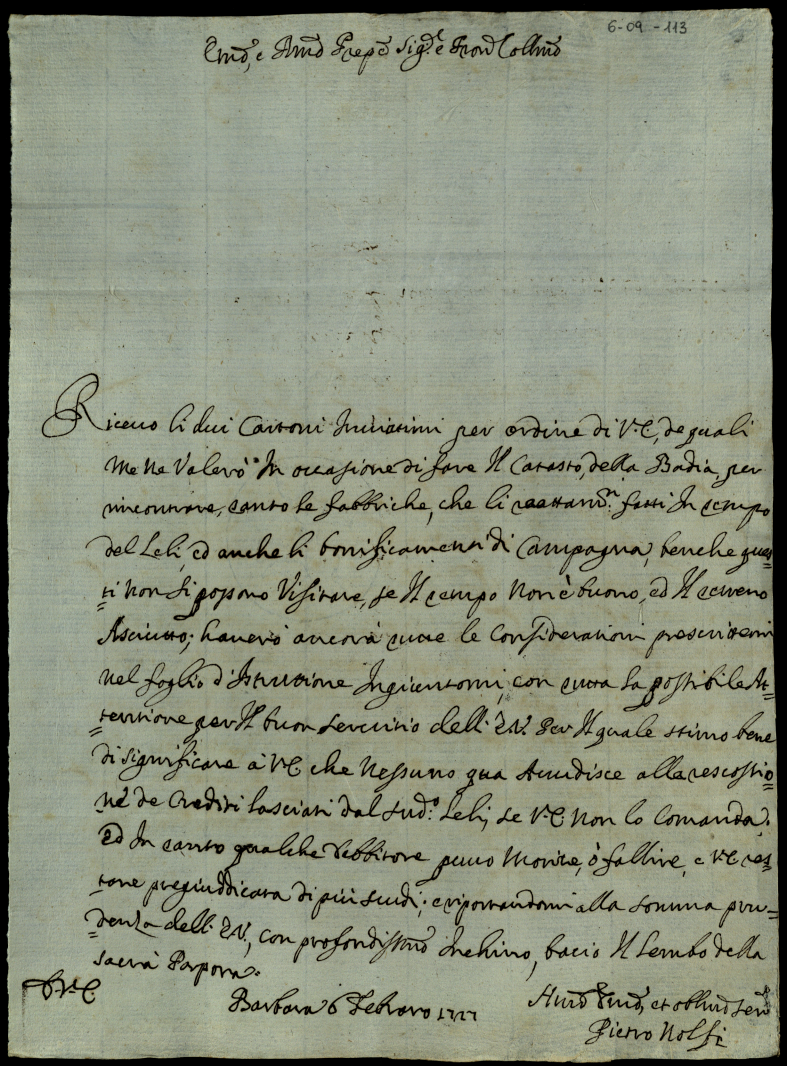 6-09-113
Em̃o, e Rmõ Prepẽ Sigr̃e e Proñ Collmõ
Riceuo li dui Cartoni Inuiatimi per ordine di V.E., de quali
me ne Valerò In occasione di fare Il Catasto, della Badia, per
rincontrare, tanto le fabbriche, che li reattam.ti fatti In tempo
del Leli, ed anche li bonificamenti di Campagna, benche ques=
=ti non si possono Visitare, se Il tempo non è buono, ed Il terreno
Asciutto; hauerò ancora tutte le Considerationi prescrittemi
nel foglio d'Istruttione Ingiuntomi, con tutta la possibile At=
=tentione per Il buon seruitio dell' E.V. Per Il quale stimo bene
di significare à V.E. che Nessuno qua Accudisce alla rescossio=
=ne de Crediti lasciati dal sud.o Leli, se V.E. non lo Comanda.
Ed In tanto qualche debbitore puuo Morire, ò fallire, e V.E. res=
=tare pregiuddicata di più scudi; e riportandomi alla somma pru=
=denza dell' E.V., con profondissmõ Inchino, bacio Il Lembo della
sacra Porpora.
D. V. E.
Barbara 6 Febraro 1727
Hum̃o Deum̃o, et obblm̃o ser̃
Pietro Nolfi